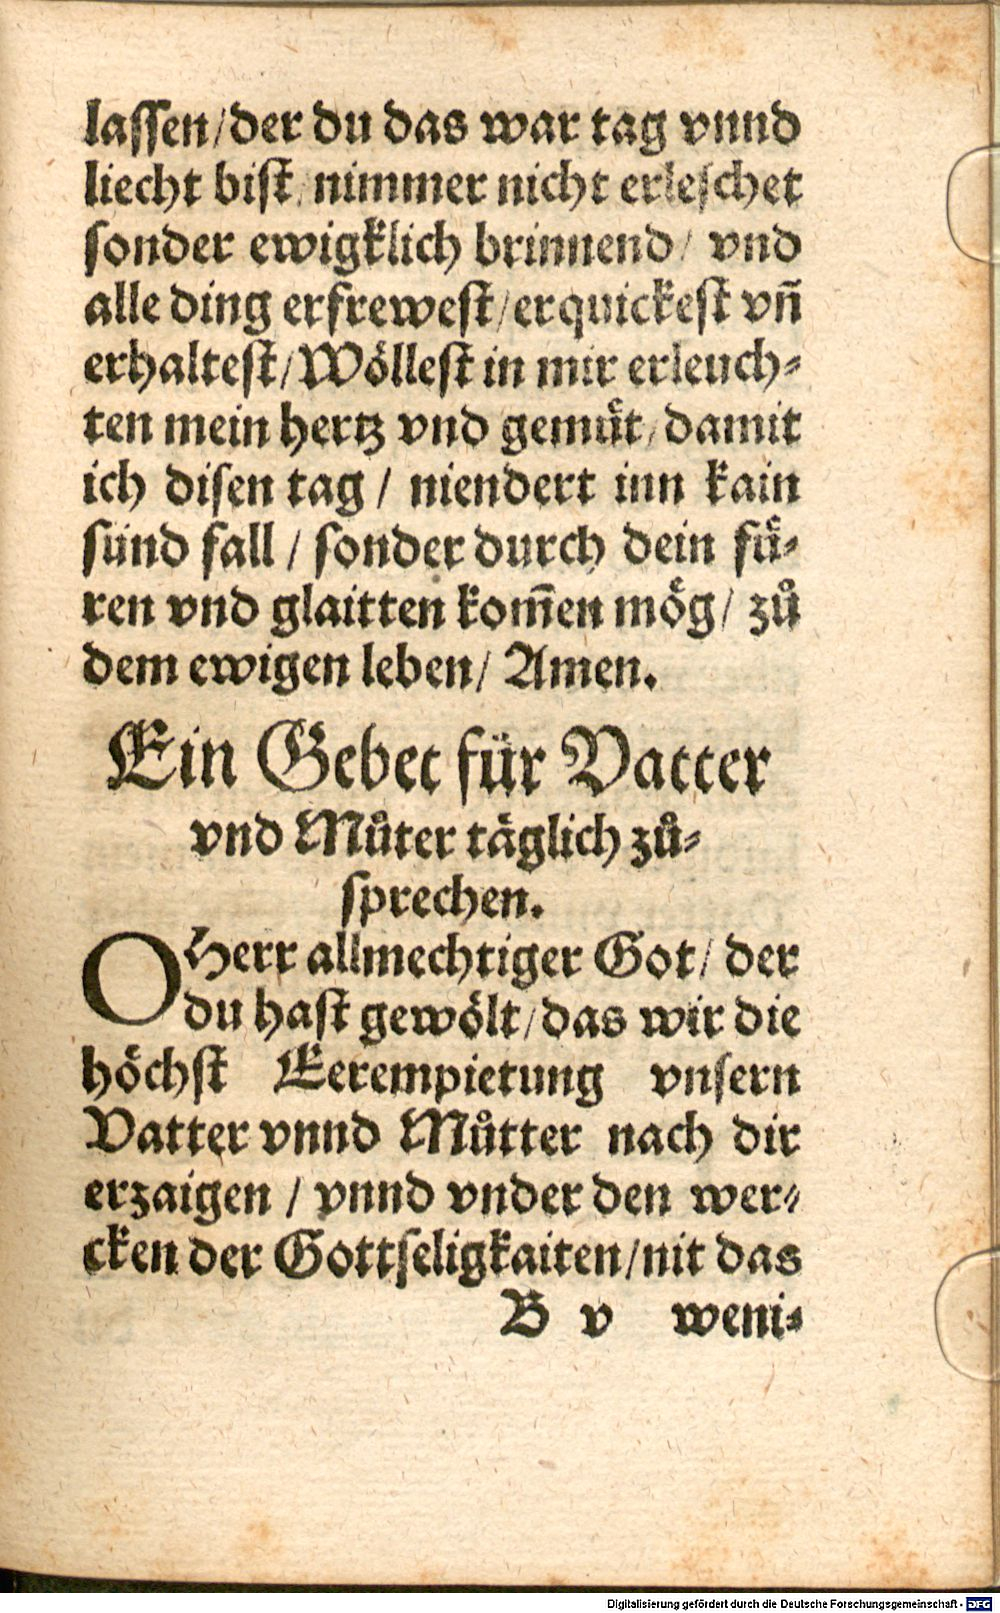 lassen/der du das war tag vnnd
liecht bist/nimmer nicht erleschet
sonder ewigklich brinnend/ vnd
alle ding erfrewest/erquickest vñ
erhaltest/Wöllest in mir erleuch-
ten mein hertz vnd gemuͤt/damit
ich disen tag / niendert inn kain
sünd fall / sonder durch dein fuͤ-
ren vnd glaitten kom̃en mög/ zů
dem ewigen leben/ Amen.
Ein Gebet für Vatter
vnd Můter täglich zů-
sprechen.
O Herr allmechtiger Got/ der
du hast gewölt/das wir die
höchst Eerempietung vnsern
Vatter vnnd Můtter nach dir
erzaigen / vnnd vnder den wer-
cken der Gottseligkaiten/nit das
B v weni-
Digitalisierung gefördert durch die Deutsche Forschungsgemeinschaft - DFG